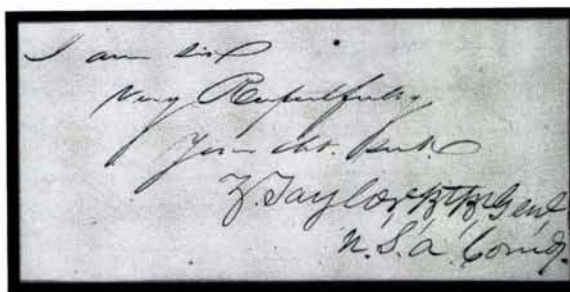 I am Sir
Very Respectfully
Your obt. Svt.
Z Taylor Bt Br Genl
U.S.A. Comdg.